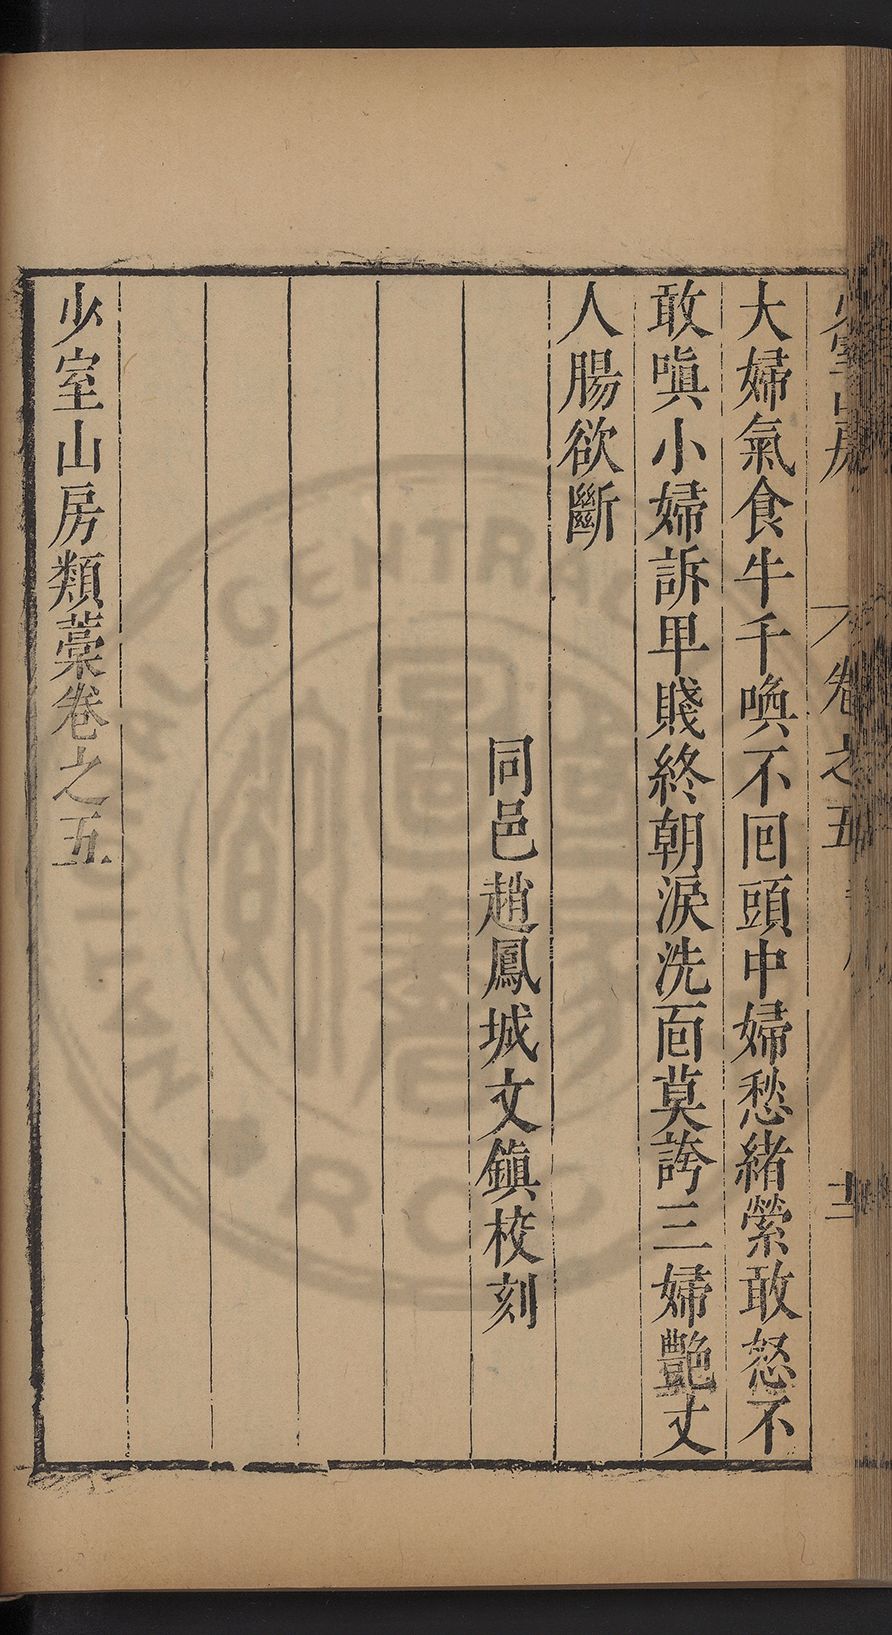 大婦氣食牛千喚不囘頭中婦愁緒縈敢怒不
敢嗔小婦訴卑賤終朝淚洗面莫誇三婦艷丈
人腸欲斷
同邑趙鳳城文鎮校刻
少室山房類藁卷之五